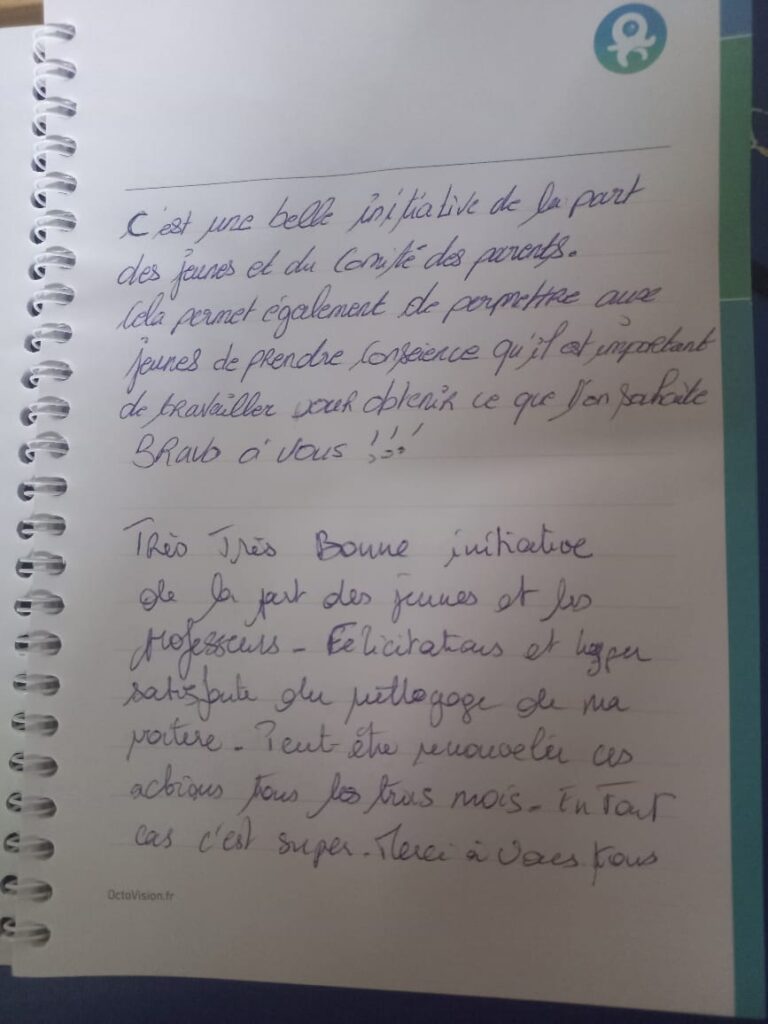 C'est une belle initiative de la part
des jeunes et du Comité des parents.
Cela permet également de permettre aux
jeunes de prendre conscience qu'il est important
de travailler pour obtenir ce que l'on souhaite
BRAVO à vous !!!
Très Très Bonne initiative
de la part des jeunes et les
professeurs - Félicitations et hyper
satisfaite du nettoyage de ma
voiture - Peut-être renouveler ces
actions tous les trois mois - En Tout
cas c'est super - Merci à vous tous
OctoVision.fr